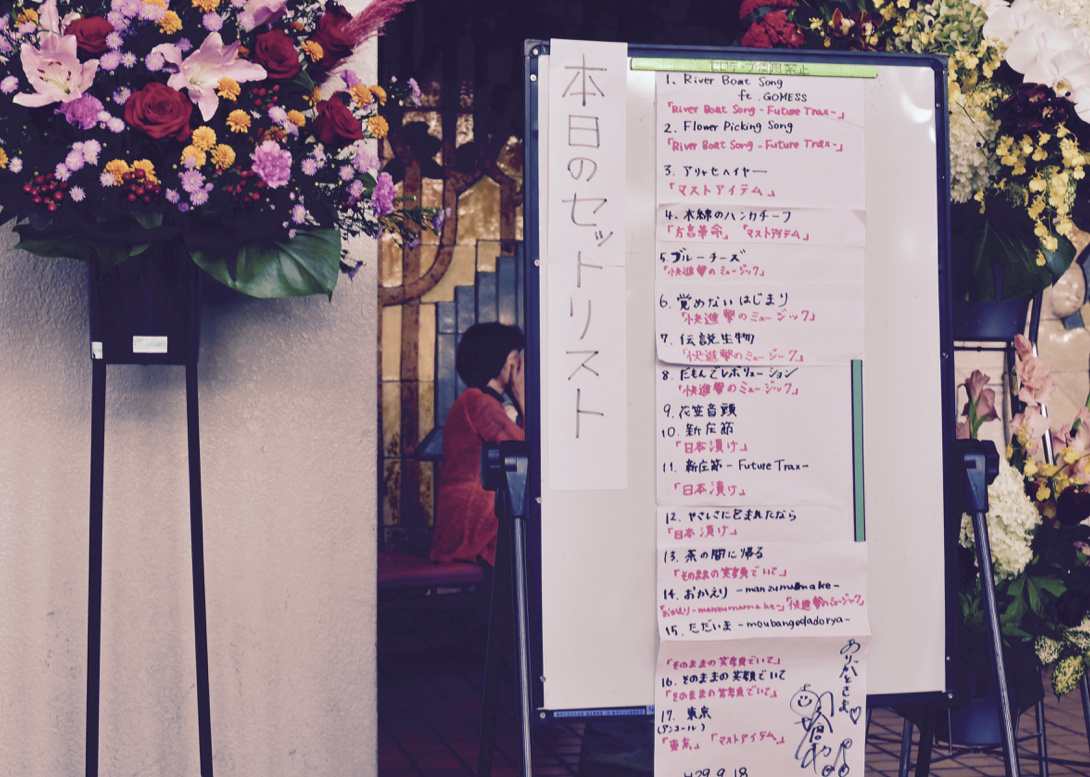 本日のセットリスト
1. River Boat Song
ft. GOMESS
「River Boat Song - Future Trax-」
2. Flower Picking Song
「River Boat Song - Future Trax-」
3. アリャセハイヤー
「マストアイテム」
4. 木綿のハンカチーフ
「方言革命」 「マストアイテム」
5. ブルーチーズ
「快進撃のミュージック」
6. 覚めないはじまり
「快進撃のミュージック」
7. 伝説生物
「快進撃のミュージーク」
8. だもんでレボリューション
「快進撃のミュージック」
9. 花笠音頭
10. 新庄節
「日本漬け」
11. 新庄節 - Future Trax-
「日本漬け」
12. やさしさに包まれたなら
「日本漬け」
13. 茶の間に帰る
「そのままの笑顔でいて」
14. おかえり -manzumamake-
「おかえり-manzumamake-」「快進撃のミュージック」
15. ただいま -moubangedadorya-
「そのままの笑顔でいて」
16. そのままの笑顔でいて
「そのままの笑顔でいて」
17. 東京
(アンコール)
「東京」 「マストアイテム」
H29.9.18
ありがとさま♡